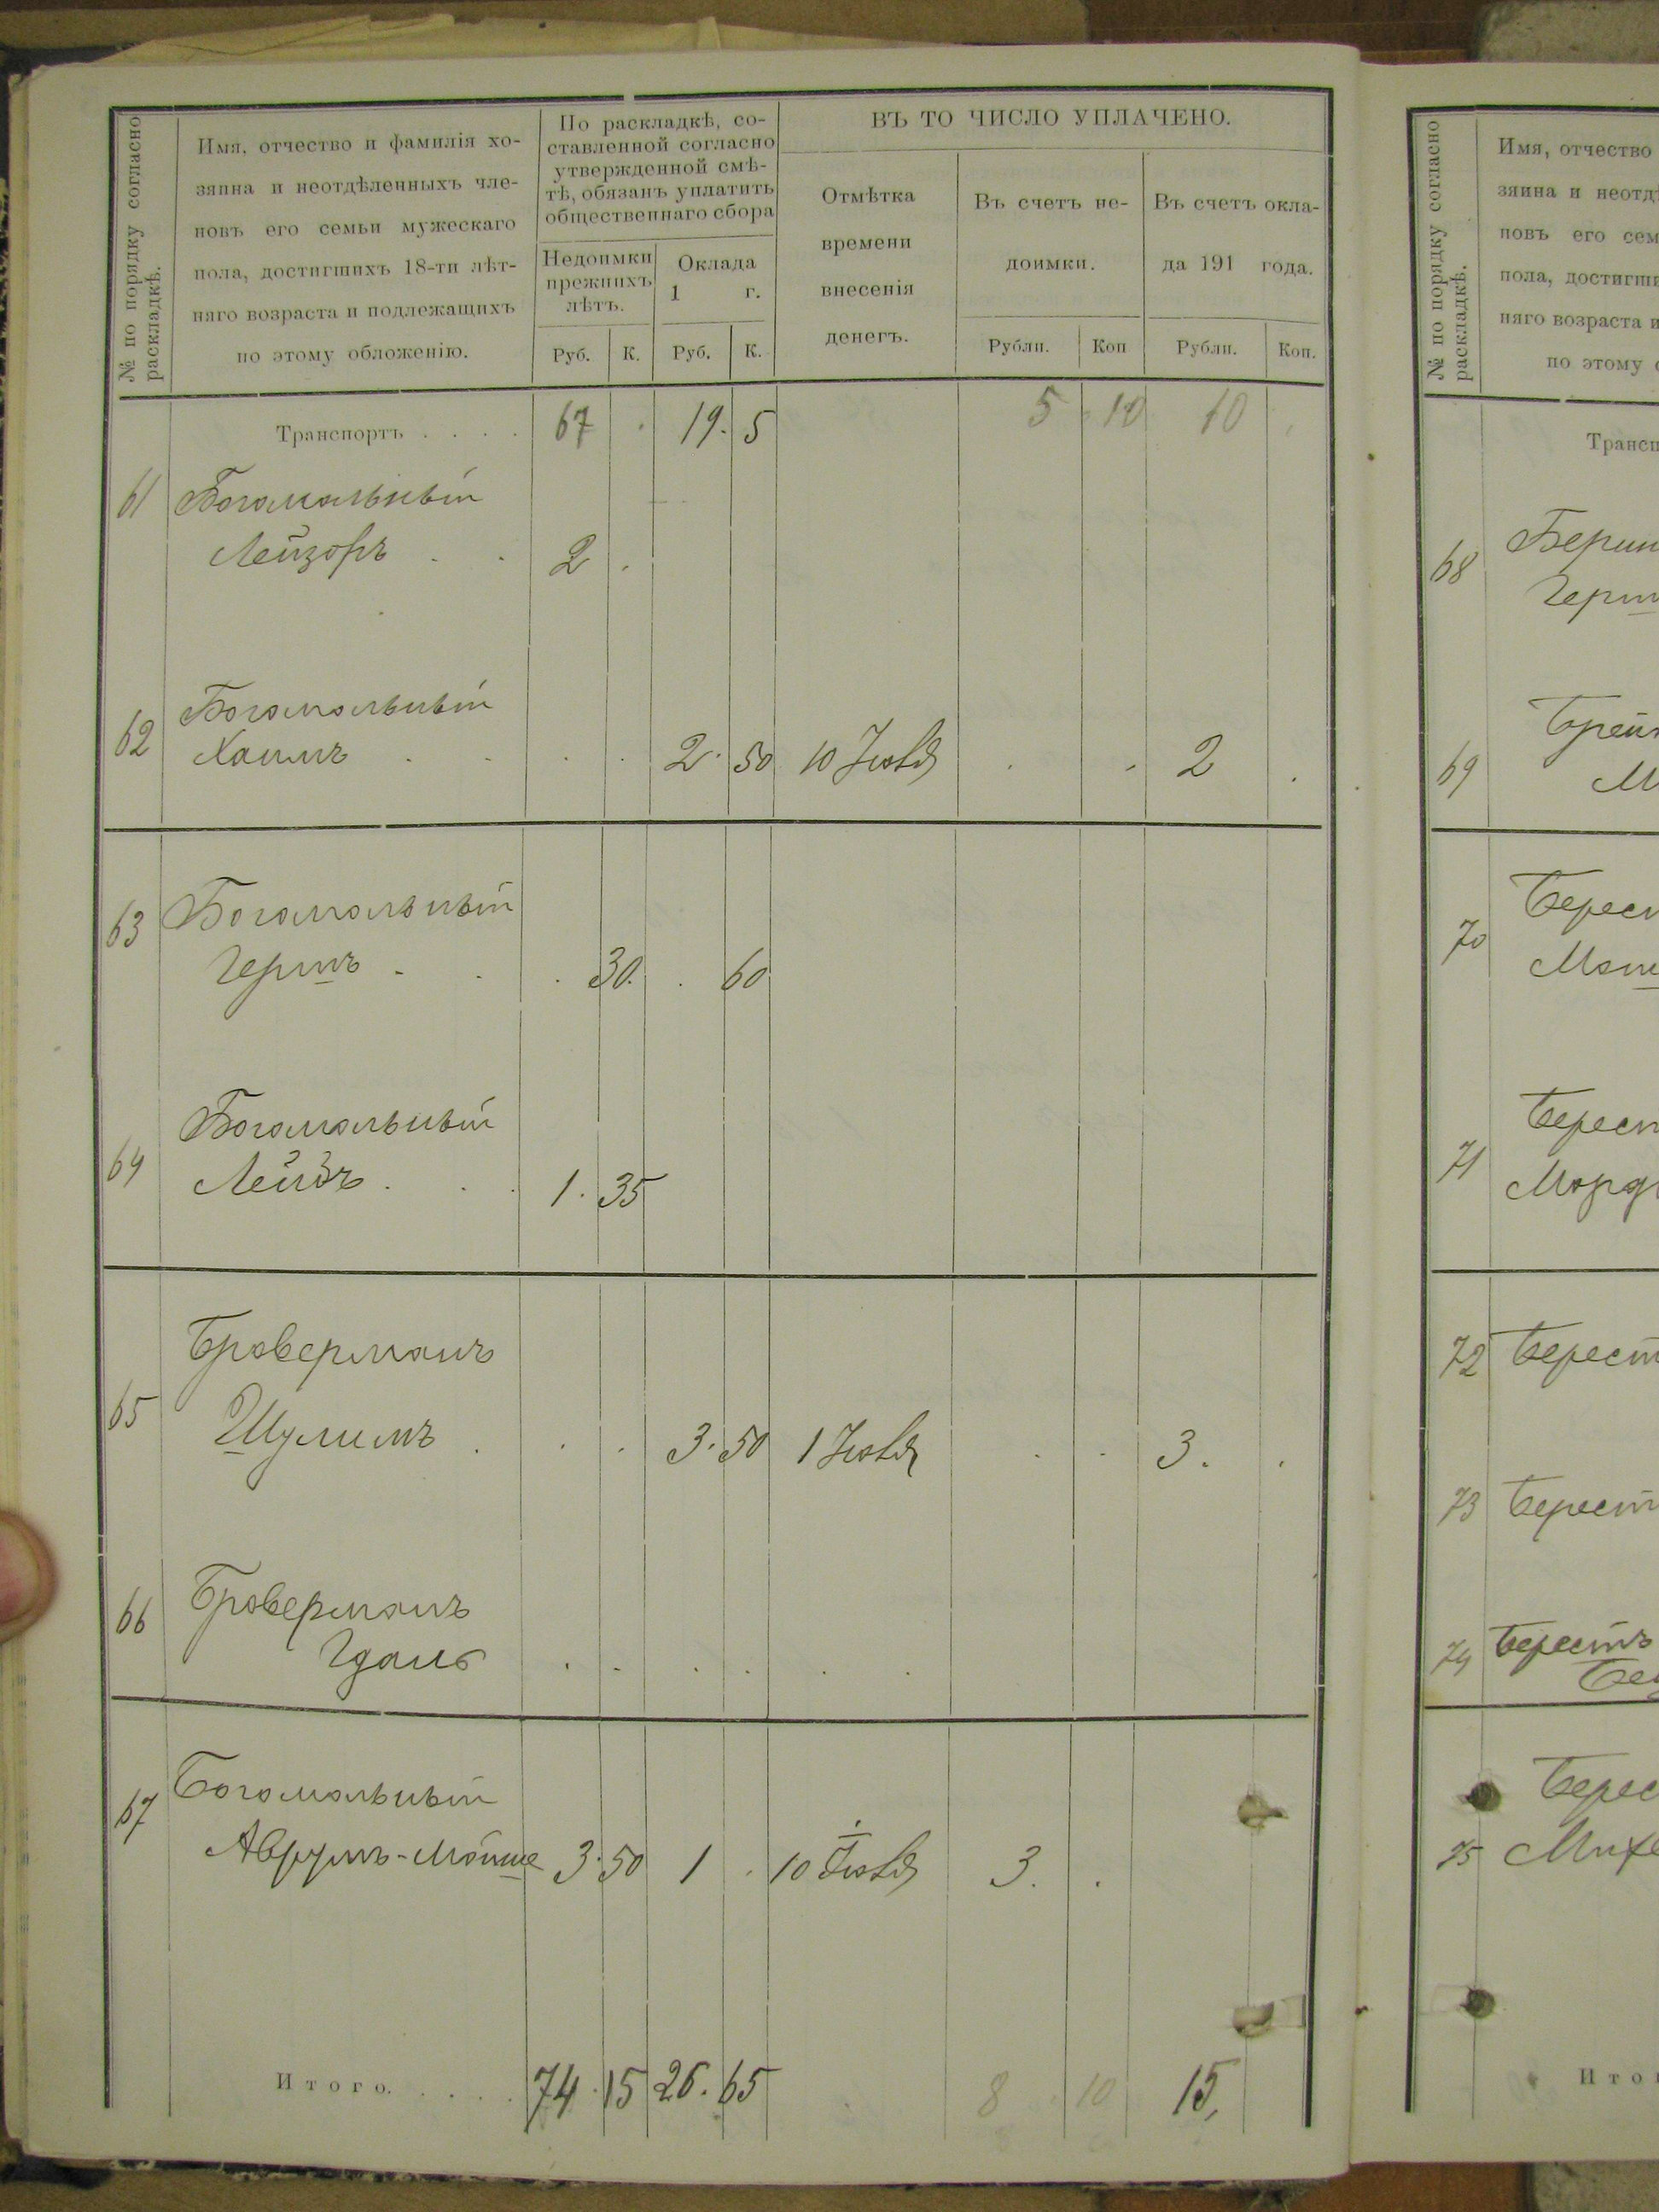 № по порядку согласно
раскладкѣ.
Имя, отчество и фамилія хо-
зяина и неотдѣленныхъ чле-
новъ его семьи мужескаго
пола, достигшихъ 18-ти лѣт-
няго возраста и подлежащихъ
по этому обложенію.
По раскладкѣ, со-
ставленной согласно
утвержденной смѣ-
тѣ, обязанъ уплатить
общественнаго сбора
Недоимки
прежнихъ
лѣтъ.
Оклада
1 г.
Руб. К. Руб. К.
ВЪ ТО ЧИСЛО УПЛАЧЕНО.
Отмѣтка
времени
внесенія
денегъ.
Въ счетъ не-
доимки.
Въ счетъ окла-
да 191 года.
Рубли. Коп Рубли. Коп.
Транспортъ . . . . 67 . 19. 5 5 . 10 10 .
61 Богомольный
Лейзоръ . . 2 .
62 Богомольный
Хаимъ . . . . 2. 50 10 Іюля . . 2 .
63 Богомольный
Гершъ . . . 30. . 60
64 Богомольный
Лейбъ . . . 1. 35
65 Броверманъ
Шулимъ . . . 3. 50 1 Іюля . . 3. .
66 Броверманъ
Гдаль . . . . . .
67 Богомольный
Аврумъ-Мойше 3. 50 1 . 10 Іюля 3. .
Итого. . . . . 74. 15 26. 65 8 . 10 15,
№ по порядку согласно
раскладкѣ.
Имя, отчество
зяина и неотдѣ
новъ его сем
пола, достигши
няго возраста и
по этому о
Трансп
68
69
70
71
72 Берест
73 Берест
74 Берестъ
75
Ито